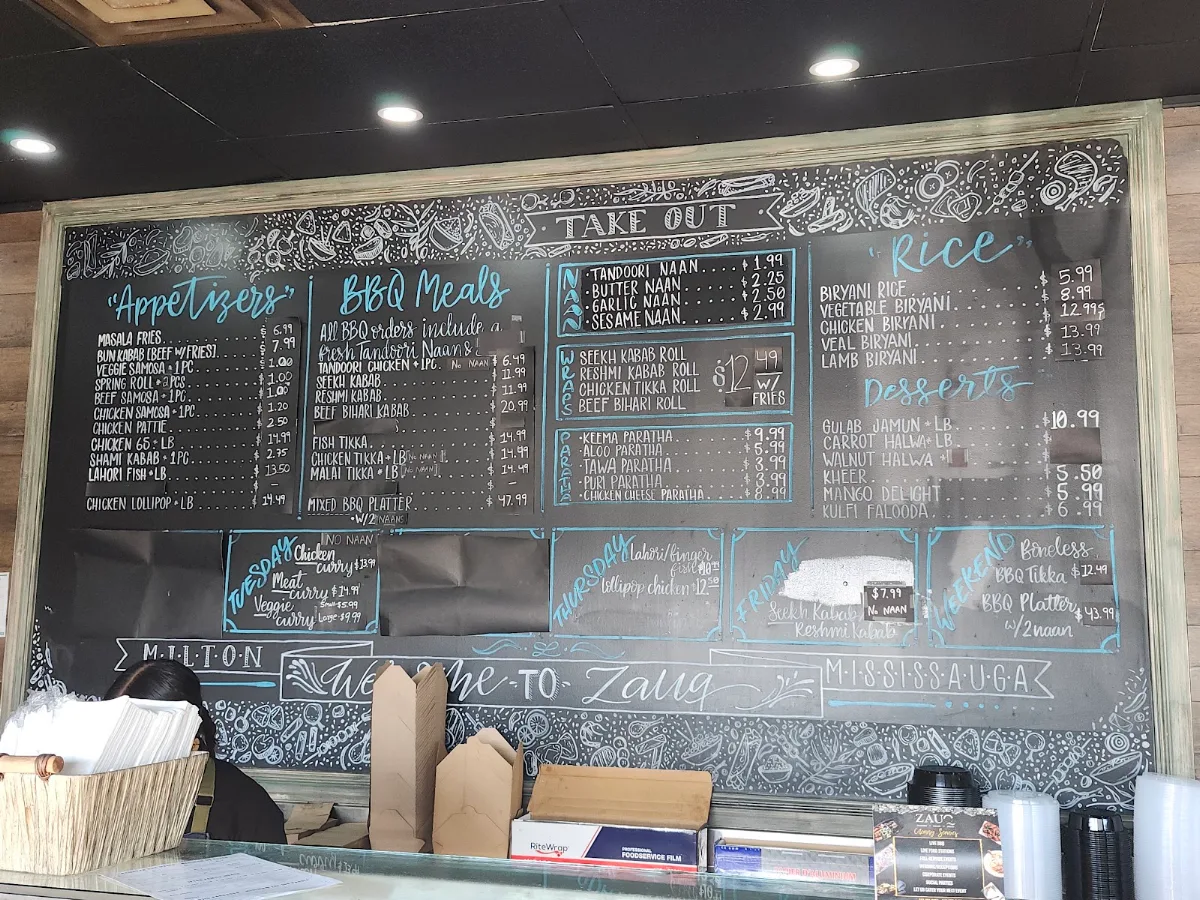 TAKE OUT
"Appetizers"
MASALA FRIES $ 6.99
BUN KABAB [BEEF W/FRIES] $ 7.99
VEGGIE SAMOSA • 1PC 1.00
SPRING ROLL • 2PCS 1.00
BEEF SAMOSA • 1PC 1.00
CHICKEN SAMOSA • 1PC 1.20
CHICKEN PATTIE 2.50
CHICKEN 65 • LB 14.99
SHAMI KABAB • 1PC 2.75
LAHORI FISH • LB 13.50
CHICKEN LOLLIPOP • LB $ 14.49
BBQ Meals
All BBQ orders include a
fresh Tandoori Naans!
TANDOORI CHICKEN • 1PC. NO NAAN $ 6.49
SEEKH KABAB 11.99
RESHMI KABAB 11.99
BEEF BIHARI KABAB $ 20.99
FISH TIKKA 14.99
CHICKEN TIKKA • LB [NO NAAN] 14.49
MALAI TIKKA • LB [NO NAAN] 14.49
MIXED BBQ PLATTER $ 47.99
• W/2 NAANS
NAAN
• TANDOORI NAAN $ 1.99
• BUTTER NAAN $ 2.25
• GARLIC NAAN $ 2.50
• SESAME NAAN $ 2.99
WRAPS
SEEKH KABAB ROLL
RESHMI KABAB ROLL
CHICKEN TIKKA ROLL
BEEF BIHARI ROLL
$12 49
W/
FRIES
PARATHA
• KEEMA PARATHA $ 9.99
• ALOO PARATHA $ 5.99
• TAWA PARATHA $ 3.99
• PURI PARATHA $ 3.99
• CHICKEN CHEESE PARATHA $ 8.99
"Rice"
BIRYANI RICE $ 5.99
VEGETABLE BIRYANI $ 8.99
CHICKEN BIRYANI $ 12.99
VEAL BIRYANI $ 13.99
LAMB BIRYANI $ 13.99
Desserts
GULAB JAMUN • LB $10.99
CARROT HALWA • LB
WALNUT HALWA
KHEER $ 5.50
MANGO DELIGHT $ 5.99
KULFI FALOODA $ 6.99
TUESDAY
NO NAAN
Chicken
curry $13.99
Meat
curry $14.99
Veggie Small $5.99
curry Large $9.99
THURSDAY
Lahori/finger
fish
lollipop chicken $12.50
FRIDAY
$7.99
NO NAAN
Seekh Kabab
Reshmi Kabab
WEEKEND
Boneless
BBQ Tikka $12.49
BBQ Platter $43.99
w/2naan
MILTON
We me TO Zauq
MISSISSAUGA
RiteWrap
PROFESSIONAL
FOODSERVICE FILM
ZAUQ
LIVE BBQ
CORPORATE EVENTS
SOCIAL PARTIES
LET US CATER YOUR NEXT EVENT